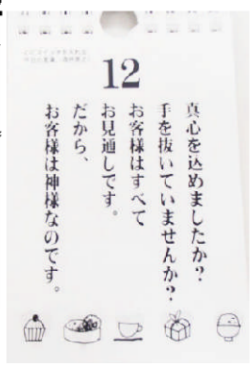 12
真心を込めましたか?
手を抜いていませんか?
お客様はすべて
お見通しです。
だから、
お客様は神様なのです。